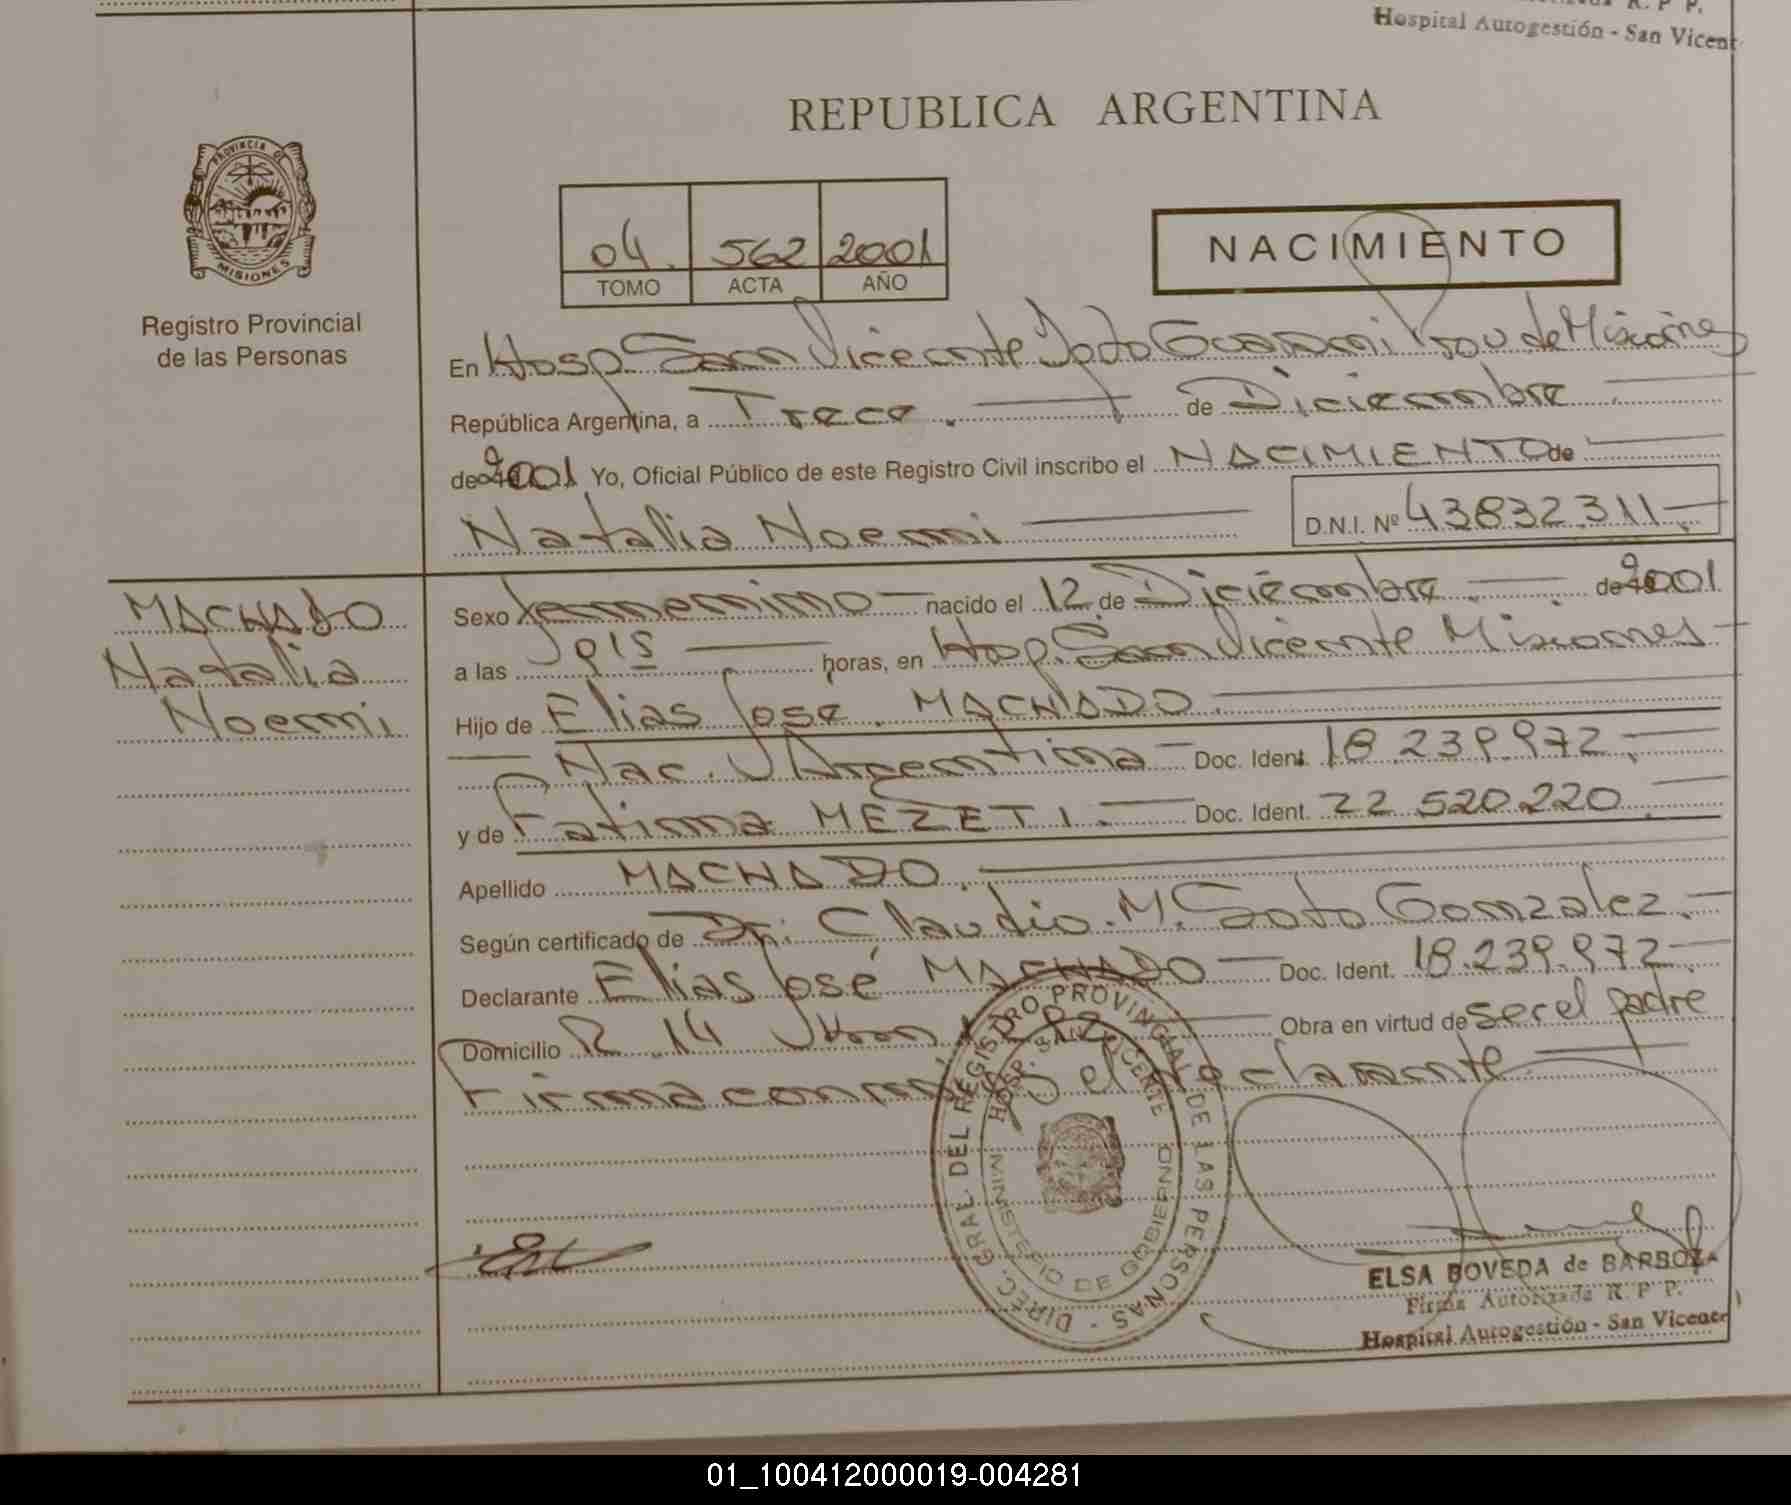 R. P P.
Hospital Autogestión - San Vicent
REPUBLICA ARGENTINA
PROVINCIA DE
MISIONES
Registro Provincial
de las Personas
04. 562 2001
TOMO ACTA AÑO
NACIMIENTO
En Hosp San Vicente Dpto Guarani Prov de Misiones
República Argentina, a Trece de Diciembre
de 2001 Yo, Oficial Público de este Registro Civil inscribo el NACIMIENTO de
Natalia Noemi D.N.I. Nº 43832311
MACHADO
Natalia
Noemi
Sexo femenino nacido el 12 de Diciembre de 2001
a las Seis horas, en Hosp. San Vicente Misiones
Hijo de Elias José MACHADO
Nac. Argentina Doc. Ident. 18 239.972
y de Fatima MEZETI. Doc. Ident. 22 520.220
Apellido MACHADO.
Según certificado de Dr. Claudio M. Soto Gonzalez.
Declarante Elias José MACHADO Doc. Ident. 18.239.972
Domicilio R. 14 Obra en virtud de ser el padre
Firma conmigo el declarante
DIREC. GRAL. DEL REGISTRO PROVINCIAL DE LAS PERSONAS -
HOSP. SAN VICENTE
MINISTERIO DE GOBIERNO
ELSA BOVEDA de BARBOZA
Firma Autorizada R. P P.
Hospital Autogestión - San Vicente
01_100412000019-004281